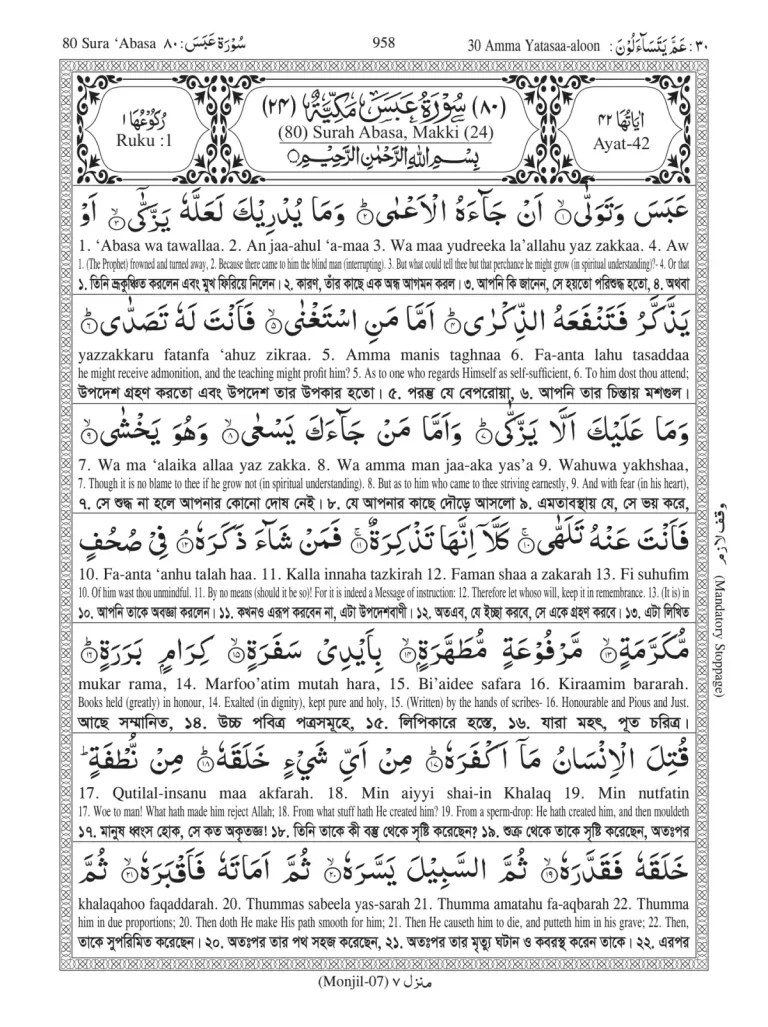 80 Sura ‘Abasa ٨٠: سُوْرَةُ عَبَسَ 958 30 Amma Yatasaa-aloon : عَمَّ يَتَسَآءَلُوْنَ :٣٠
رُكُوْعُهَا ١
Ruku :1
(٨٠) سُوْرَةُ عَبَسَ مَكِّيَّةٌ (٢٤)
(80) Surah Abasa, Makki (24)
بِسْمِ اللّٰهِ الرَّحْمٰنِ الرَّحِيْمِ
اٰيَاتُهَا ٤٢
Ayat-42
عَبَسَ وَتَوَلّٰىۤ ۙ﴿١﴾ اَنْ جَآءَهُ الْاَعْمٰى ؕ﴿٢﴾ وَمَا يُدْرِيْكَ لَعَلَّهٗ يَزَّكّٰىۤ ۙ﴿٣﴾ اَوْ
1. ‘Abasa wa tawallaa. 2. An jaa-ahul ‘a-maa 3. Wa maa yudreeka la’allahu yaz zakkaa. 4. Aw
1. (The Prophet) frowned and turned away, 2. Because there came to him the blind man (interrupting). 3. But what could tell thee but that perchance he might grow (in spiritual understanding)?- 4. Or that
১. তিনি ভ্রূকুঞ্চিত করলেন এবং মুখ ফিরিয়ে নিলেন। ২. কারণ, তাঁর কাছে এক অন্ধ আগমন করল। ৩. আপনি কি জানেন, সে হয়তো পরিশুদ্ধ হতো, ৪. অথবা
يَذَّكَّرُ فَتَنْفَعَهُ الذِّكْرٰى ؕ﴿٤﴾ اَمَّا مَنِ اسْتَغْنٰى ۙ﴿٥﴾ فَاَنْتَ لَهٗ تَصَدّٰى ؕ﴿٦﴾
yazzakkaru fatanfa ‘ahuz zikraa. 5. Amma manis taghnaa 6. Fa-anta lahu tasaddaa
he might receive admonition, and the teaching might profit him? 5. As to one who regards Himself as self-sufficient, 6. To him dost thou attend;
উপদেশ গ্রহণ করতো এবং উপদেশ তার উপকার হতো। ৫. পরন্তু যে বেপরোয়া, ৬. আপনি তার চিন্তায় মশগুল।
وَمَا عَلَيْكَ اَلَّا يَزَّكّٰى ؕ﴿٧﴾ وَاَمَّا مَنْ جَآءَكَ يَسْعٰى ۙ﴿٨﴾ وَهُوَ يَخْشٰى ۙ﴿٩﴾
7. Wa ma ‘alaika allaa yaz zakka. 8. Wa amma man jaa-aka yas’a 9. Wahuwa yakhshaa,
7. Though it is no blame to thee if he grow not (in spiritual understanding). 8. But as to him who came to thee striving earnestly, 9. And with fear (in his heart),
৭. সে শুদ্ধ না হলে আপনার কোনো দোষ নেই। ৮. যে আপনার কাছে দৌড়ে আসলো ৯. এমতাবস্থায় যে, সে ভয় করে,
فَاَنْتَ عَنْهُ تَلَهّٰى ۚ﴿١٠﴾ كَلَّاۤ اِنَّهَا تَذْكِرَةٌ ۚ﴿١١﴾ فَمَنْ شَآءَ ذَكَرَهٗ ۘ﴿١٢﴾ فِيْ صُحُفٍ
10. Fa-anta ‘anhu talah haa. 11. Kalla innaha tazkirah 12. Faman shaa a zakarah 13. Fi suhufim
10. Of him wast thou unmindful. 11. By no means (should it be so)! For it is indeed a Message of instruction: 12. Therefore let whoso will, keep it in remembrance. 13. (It is) in
১০. আপনি তাকে অবজ্ঞা করলেন। ১১. কখনও এরূপ করবেন না, এটা উপদেশবাণী। ১২. অতএব, যে ইচ্ছা করবে, সে একে গ্রহণ করবে। ১৩. এটা লিখিত
وقف لازم (Mandatory Stoppage)
مُّكَرَّمَةٍ ۙ﴿١٣﴾ مَّرْفُوْعَةٍ مُّطَهَّرَةٍ ۙ﴿١٤﴾ بِاَيْدِيْ سَفَرَةٍ ۙ﴿١٥﴾ كِرَامٍۭ بَرَرَةٍ ؕ﴿١٦﴾
mukar rama, 14. Marfoo’atim mutah hara, 15. Bi’aidee safara 16. Kiraamim bararah.
Books held (greatly) in honour, 14. Exalted (in dignity), kept pure and holy, 15. (Written) by the hands of scribes- 16. Honourable and Pious and Just.
আছে সম্মানিত, ১৪. উচ্চ পবিত্র পত্রসমূহে, ১৫. লিপিকারে হস্তে, ১৬. যারা মহৎ, পূত চরিত্র।
قُتِلَ الْاِنْسَانُ مَاۤ اَكْفَرَهٗ ؕ﴿١٧﴾ مِنْ اَيِّ شَيْءٍ خَلَقَهٗ ؕ﴿١٨﴾ مِنْ نُّطْفَةٍ ؕ
17. Qutilal-insanu maa akfarah. 18. Min aiyyi shai-in Khalaq 19. Min nutfatin
17. Woe to man! What hath made him reject Allah; 18. From what stuff hath He created him? 19. From a sperm-drop: He hath created him, and then mouldeth
১৭. মানুষ ধ্বংস হোক, সে কত অকৃতজ্ঞ! ১৮. তিনি তাকে কী বস্তু থেকে সৃষ্টি করেছেন? ১৯. শুক্র থেকে তাকে সৃষ্টি করেছেন, অতঃপর
خَلَقَهٗ فَقَدَّرَهٗ ۙ﴿١٩﴾ ثُمَّ السَّبِيْلَ يَسَّرَهٗ ۙ﴿٢٠﴾ ثُمَّ اَمَاتَهٗ فَاَقْبَرَهٗ ۙ﴿٢١﴾ ثُمَّ
khalaqahoo faqaddarah. 20. Thummas sabeela yas-sarah 21. Thumma amatahu fa-aqbarah 22. Thumma
him in due proportions; 20. Then doth He make His path smooth for him; 21. Then He causeth him to die, and putteth him in his grave; 22. Then,
তাকে সুপরিমিত করেছেন। ২০. অতঃপর তার পথ সহজ করেছেন, ২১. অতঃপর তার মৃত্যু ঘটান ও কবরস্থ করেন তাকে। ২২. এরপর
(Monjil-07) ٧ منزل